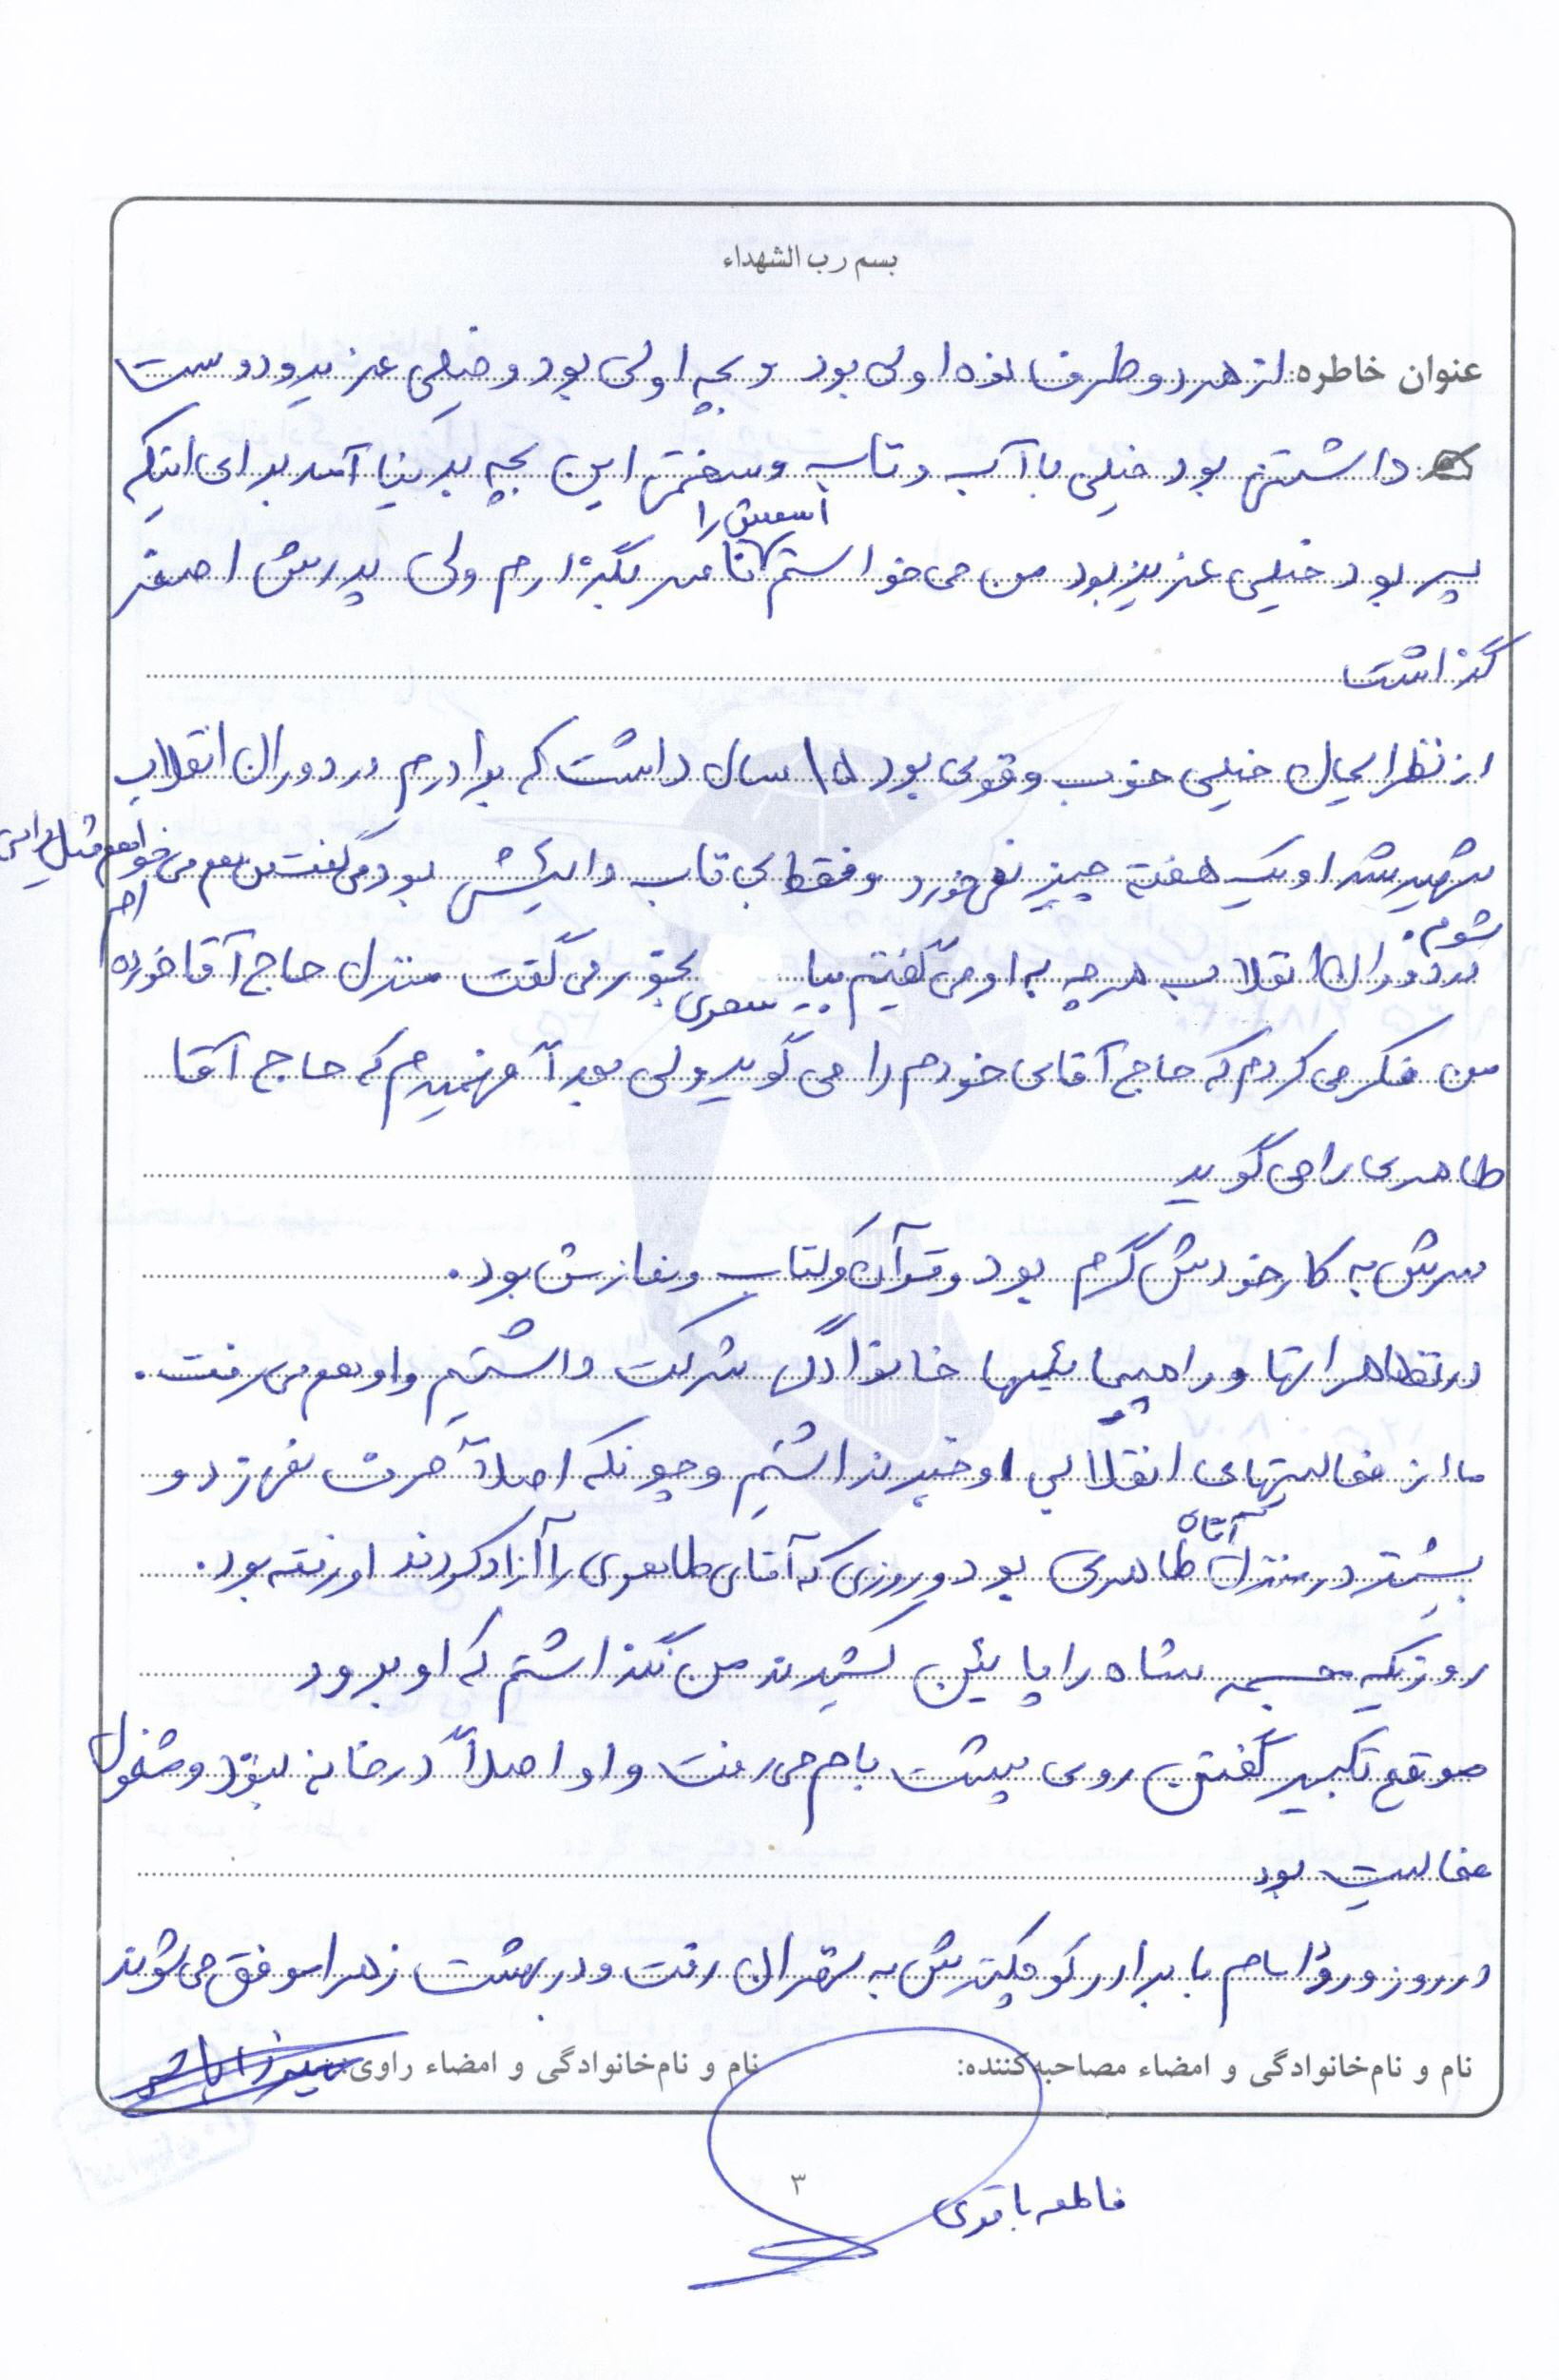 بسم رب الشهداء
عنوان خاطره: از هر دو طرف نوه اولی بود و بچه اولی بود و خیلی عزیز و دوست
داشتنی بود خیلی با آب و تاب و سختی این بچه بدنیا آمد برای اینکه
پسر بود خیلی عزیز بود من می خواستم اسمش را ناصر بگذارم ولی پدرش اصغر
گذاشت
از نظر ایمان خیلی خوب و قوی بود ۱۵ سال داشت که برادرم در دوران انقلاب
شهید شد او یک هفته چیزی نمی خورد و فقط بی تاب دائیش بود می گفت من هم می خواهم مثل دایی
شوم.
در دوران انقلاب هر چه به او می گفتیم بیا سحری بخور می گفت منزل حاج آقا خورده ام
من فکر می کردم که حاج آقای خودم را می گوید ولی بعداً فهمیدم که حاج آقا
طاهری را می گوید
سرش به کار خودش گرم بود و قرآن و کتاب و نمازش بود.
در تظاهراتها و راهپیمائیها خانوادگی شرکت داشتیم و او هم می رفت.
ما از فعالیتهای انقلابی او خبر نداشتیم و چونکه اصلاً حرف نمی زد و
بیشتر در منزل آقای طاهری بود و روزی که آقای طاهری را آزاد کردند او رفته بود.
روزیکه مجسمه شاه را پایئین کشیدند من نگذاشتم که او برود
موقع تکبیر گفتن روی پشت بام می رفت و او اصلاً در خانه نبود و مشغول
فعالیت بود
در روز ورود امام با برادر کوچکترش به تهران رفت و در بهشت زهرا موفق می شوند
نام و نام خانوادگی و امضاء مصاحبه کننده: نام و نام خانوادگی و امضاء راوی:
فاطمه باقری
۳